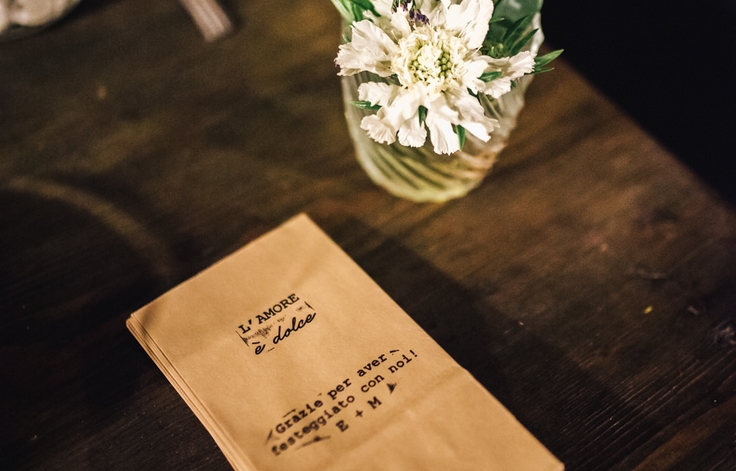 L'AMORE
è dolce
Grazie per aver
festeggiato con noi!
E + M